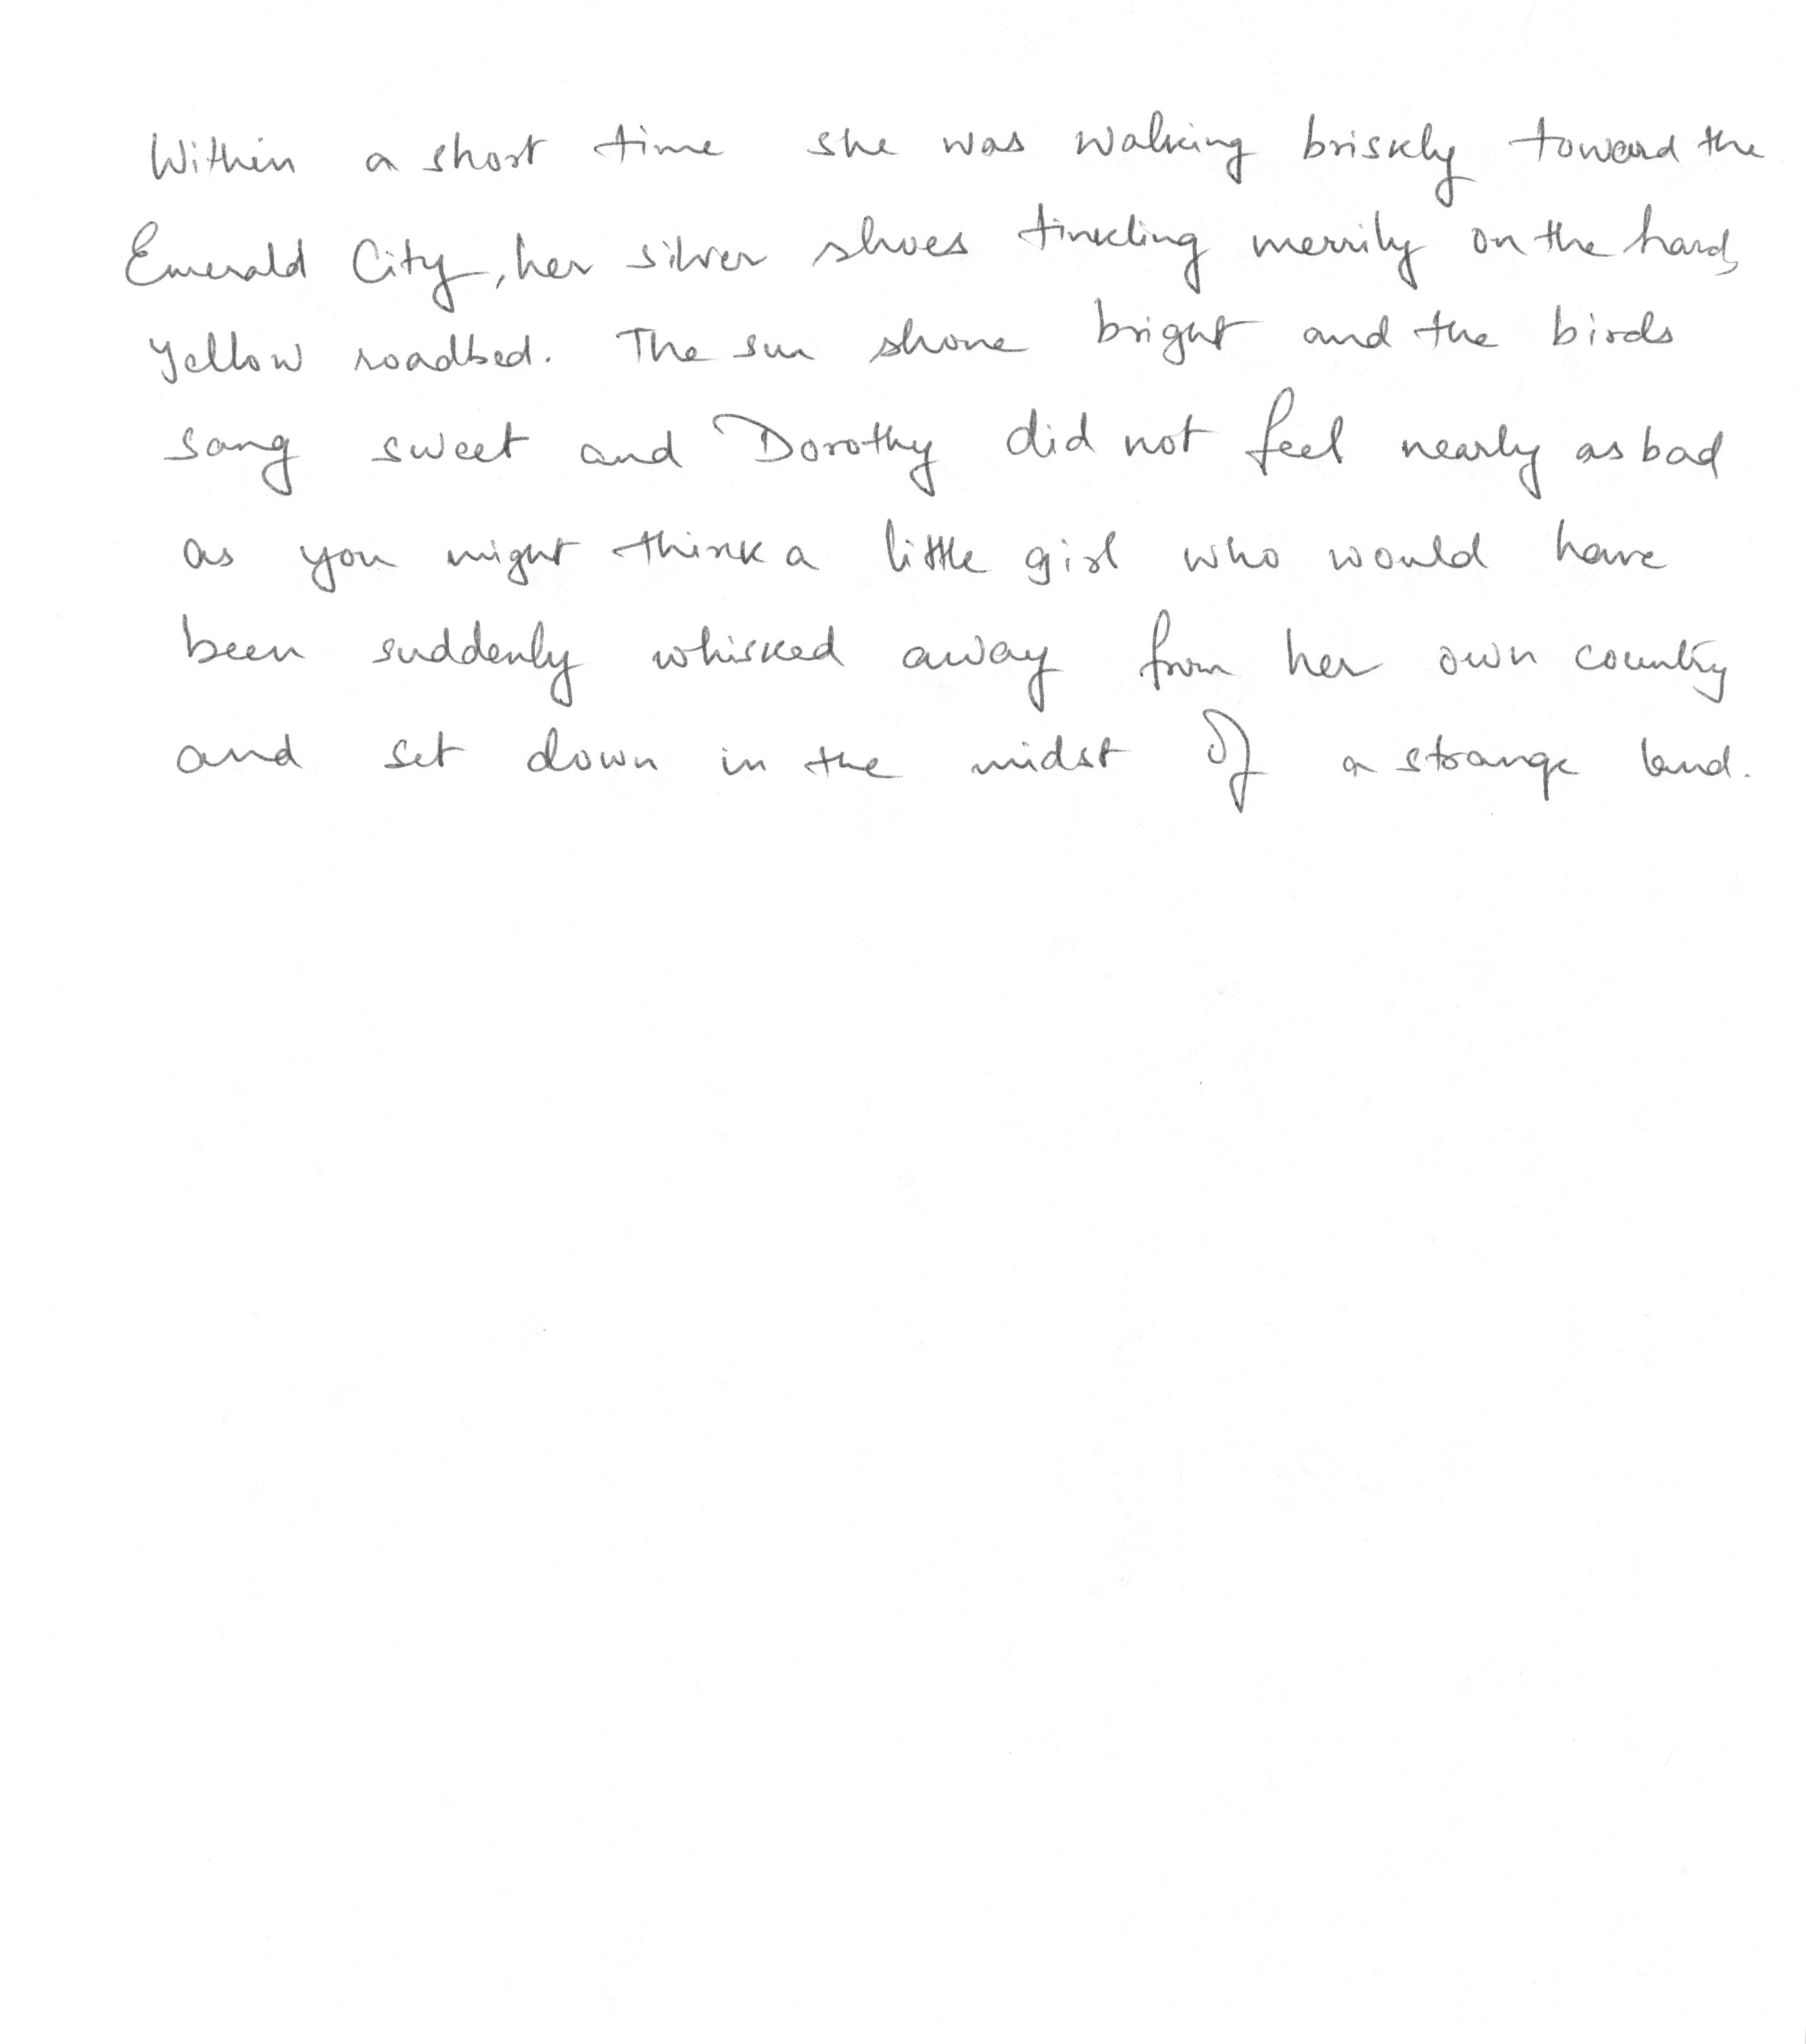 Within a short time she was walking briskly toward the
Emerald City, her silver shoes tinkling merrily on the hard,
yellow roadbed. The sun shone bright and the birds
sang sweet and Dorothy did not feel nearly as bad
as you might think a little girl who would have
been suddenly whisked away from her own country
and set down in the midst of a strange land.